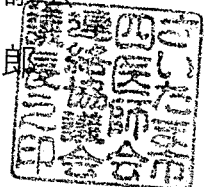 郎
さいたま市
四医師会
連絡協議会
議長之印